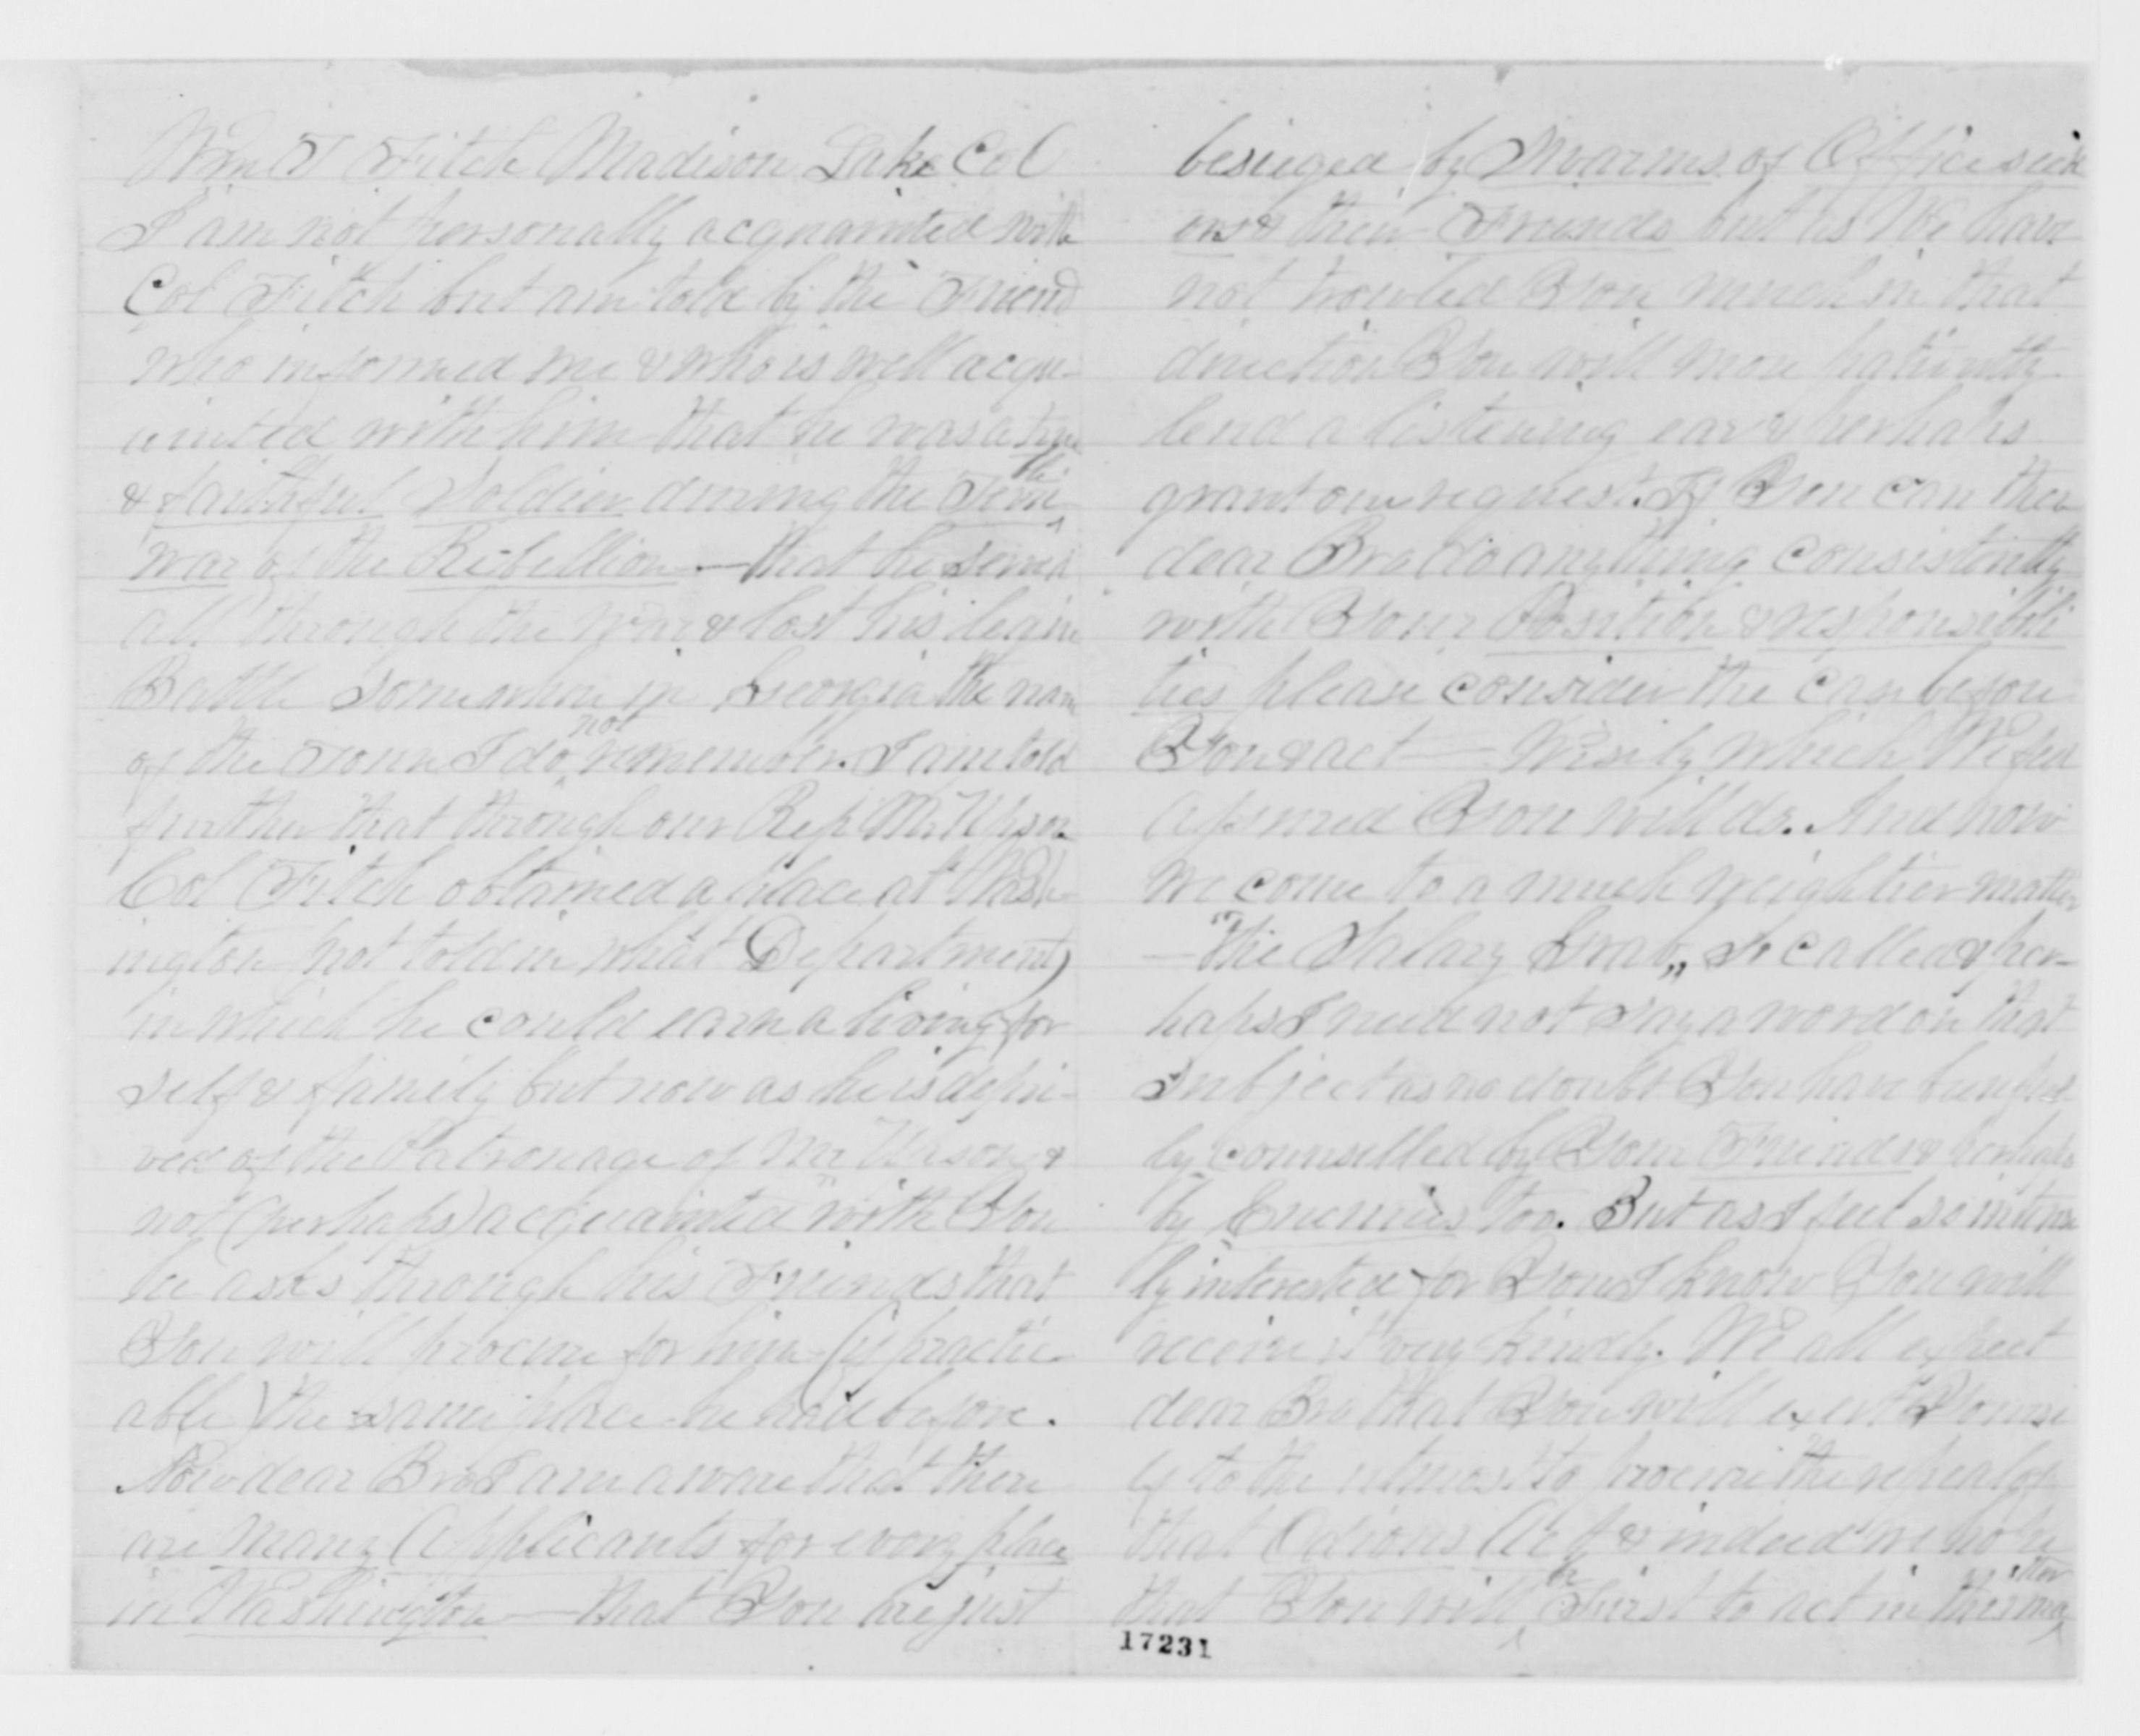 Wm T Fitch Madison Lake Co O
I am not personally acquainted with
Col Fitch but am told by the Friend
who informed me & who is well acqu-
ainted with him that he was a true
& faithful Soldier during the
war of the Rebellion — that he served
all through the War & lost his leg in
Battle Somewhere in Georgia the name
of the Town I do not remember. I am told
further that through our Rep Mr Upson
Col Fitch obtained a place at Wash-
ington not told in what Department)
in which he could earn a living for
self & family but now as he is depri-
ved of the Patronage of Mr Upson &
not (perhaps) acquainted with You
he asks through his Friends that
You will procure for him (if practic-
able) the same place he had before.
Now dear Bro I am aware that there
are many Applicants for every place
in Washington — that You are just
besieged by Swarms of Office seek
ers & their Friends but as We have
not troubled You much in that
direction You will more patiently
lend a listening ear & perhaps
grant our request. If You can then
dear Bro do anything consistently
with Your Position & responsibili
ties please consider the case before
You & act — Wisely which We feel
assured You will do. And now
we come to a much weightier matter
— "The Salary Grab" So called & per-
haps I need not say a word on that
Subject as no doubt You have been
ly counselled by Your Friends & perhaps
by Enemies too. But as I feel so intense
ly interested for You I know You will
receive it very kindly. We all expect
dear Bro that You will exert Yourse
lf to the utmost to procure the repeal of
that Odious Act & indeed we hope
that You will be First to act in the matter
17231